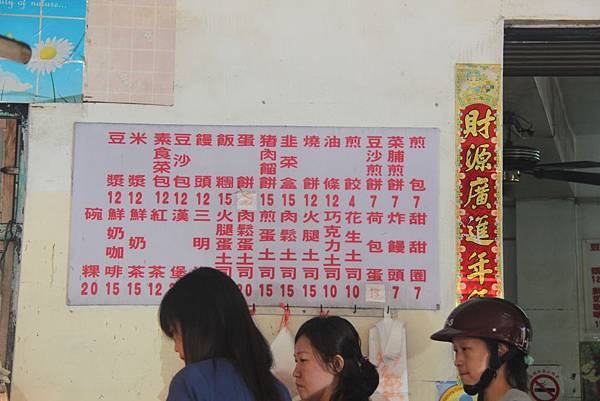 uty of nature...
煎包 7
菜脯煎餅 7
豆沙煎餅 7
煎餃 4
油條 12
燒餅 12
韭菜盒 15
豬肉餡餅 15
蛋餅
飯糰 15
饅頭 12
豆沙包 12
素食菜包 12
米漿 12
豆漿 12
甜甜圈 7
炸饅頭 7
荷包蛋
花生土司 10
巧克力土司 10
火腿土司 15
肉鬆土司 15
煎蛋土司 15
肉鬆蛋土司 20
火腿蛋土司
三明
漢堡
紅茶 12
鮮奶茶 15
鮮奶咖啡 15
碗粿 20
財源廣進年年